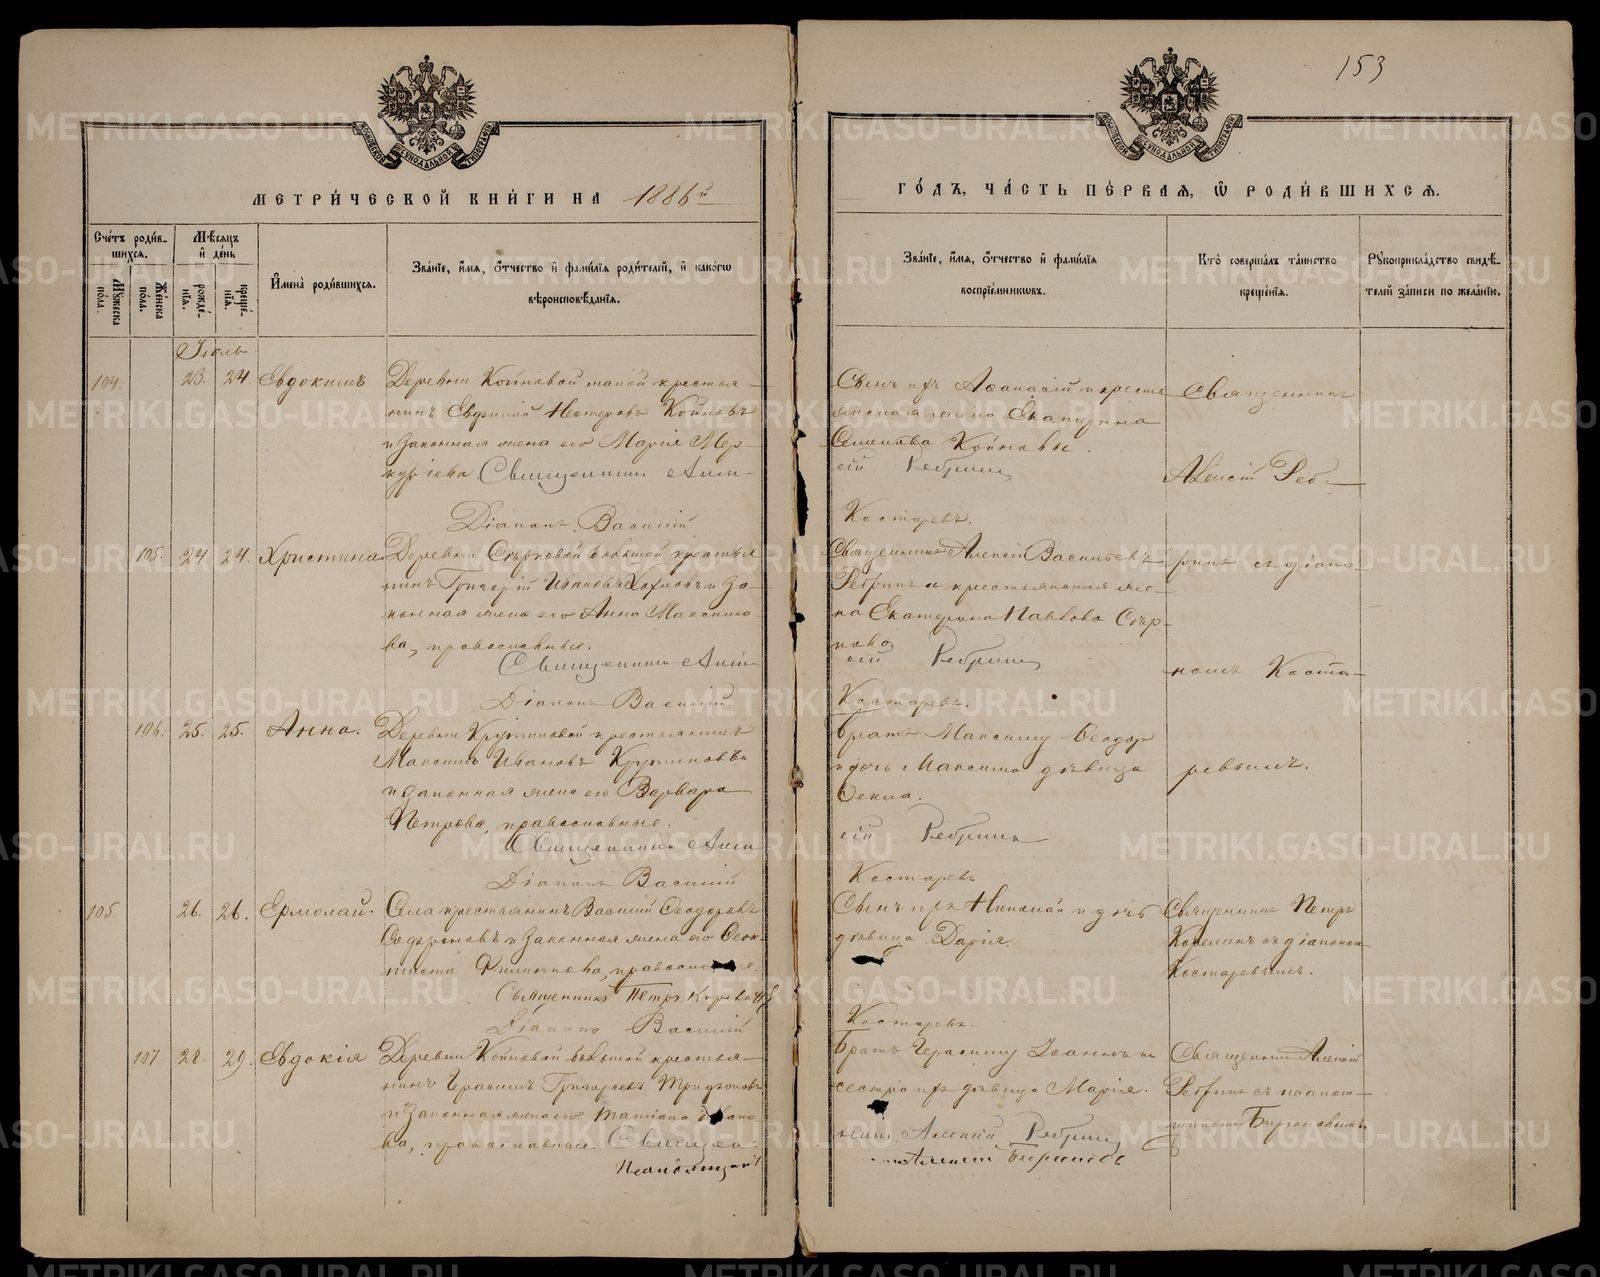 153
МЕТРИ́ЧЕСКОЙ КНИ́ГИ НА 1886й
ГО́ДЪ, ЧА́СТЬ ПЕ́РВАЯ, Ѡ РОДИ́ВШИХСѦ.
Сче́тъ роди́в-
шихсѧ.
Му́жеска по́ла.
Же́нска по́ла.
Мѣ́сѧцъ и҆ де́нь
рожде́-
нїѧ.
креще́-
нїѧ.
И҆мена̀ роди́вшихсѧ.
Зва́нїе, и҆́мѧ, ѻ҆́тчество и҆ фамѝлїѧ роди́телей, и҆ како́гѡ
вѣроисповѣ́данїѧ.
Зва́нїе, и҆́мѧ, ѻ҆́тчество и҆ фамѝлїѧ
воспрїе́мникѡвъ.
Кто̀ соверша́лъ та́инство
креще́нїѧ.
Рꙋкоприкла́дство свидѣ́-
телей за́писи по жела́нїю.
Іюль
104. 23. 24. Евдокимъ
Деревни Койновой малой крестья-
нинъ Евдокій Нестеровъ Койновъ
и законная жена его Марія Мер-
куріева. Священникъ Алек-
Діаконъ Василій
Сынъ ихъ Аѳанасій и кресть
янская жена Екатерина
Семенова Койновы.
сій Ребринъ
Костаревъ.
Священникъ
Алексій Реб-
105. 24 24. Христина
Деревни большой крестья
нинъ Григорій Ивановъ и за-
конная жена его Анна Максимо-
ва, православные.
Священникъ Алек-
Діаконъ Василій
Священникъ Алексій Васильевъ
Ребринъ и крестьянская же-
на Екатерина Павлова
сій Ребринъ
Костаревъ.
ринъ съ діако-
номъ Коста-
106. 25. 25. Анна.
Деревни крестьянинъ
Максимъ Ивановъ
и законная жена его Варвара
Петрова, православные.
Священникъ Алек
Діаконъ Василій
Братъ Максиму Ѳеодор
и дочь Максима дѣвица
Ѳекла.
сій Ребринъ
Костаревъ
ревымъ.
105. 26. 26. Ермолай.
Села крестьянинъ Василій Ѳеодоровъ
и законная жена его Ѳеок-
тиста Филиппова,
Священникъ Петръ
Діаконъ Василій
Сынъ ихъ Николай и дочь
дѣвица Дарія.
Костаревъ.
Священникъ Петръ
съ діакономъ
Костаревымъ.
107. 28. 29. Евдокія
Деревни Койновой большой крестья-
нинъ Герасимъ Григорьевъ
и законная жена его Татіана Ивано-
ва, православные. Священ-
Псаломщикъ
Братъ Герасиму Іоаннъ и
сестра ихъ дѣвица Марія.
никъ Алексій Ребринъ
Алексій
Священникъ Алексій
Ребринъ съ псалом-
щикомъ